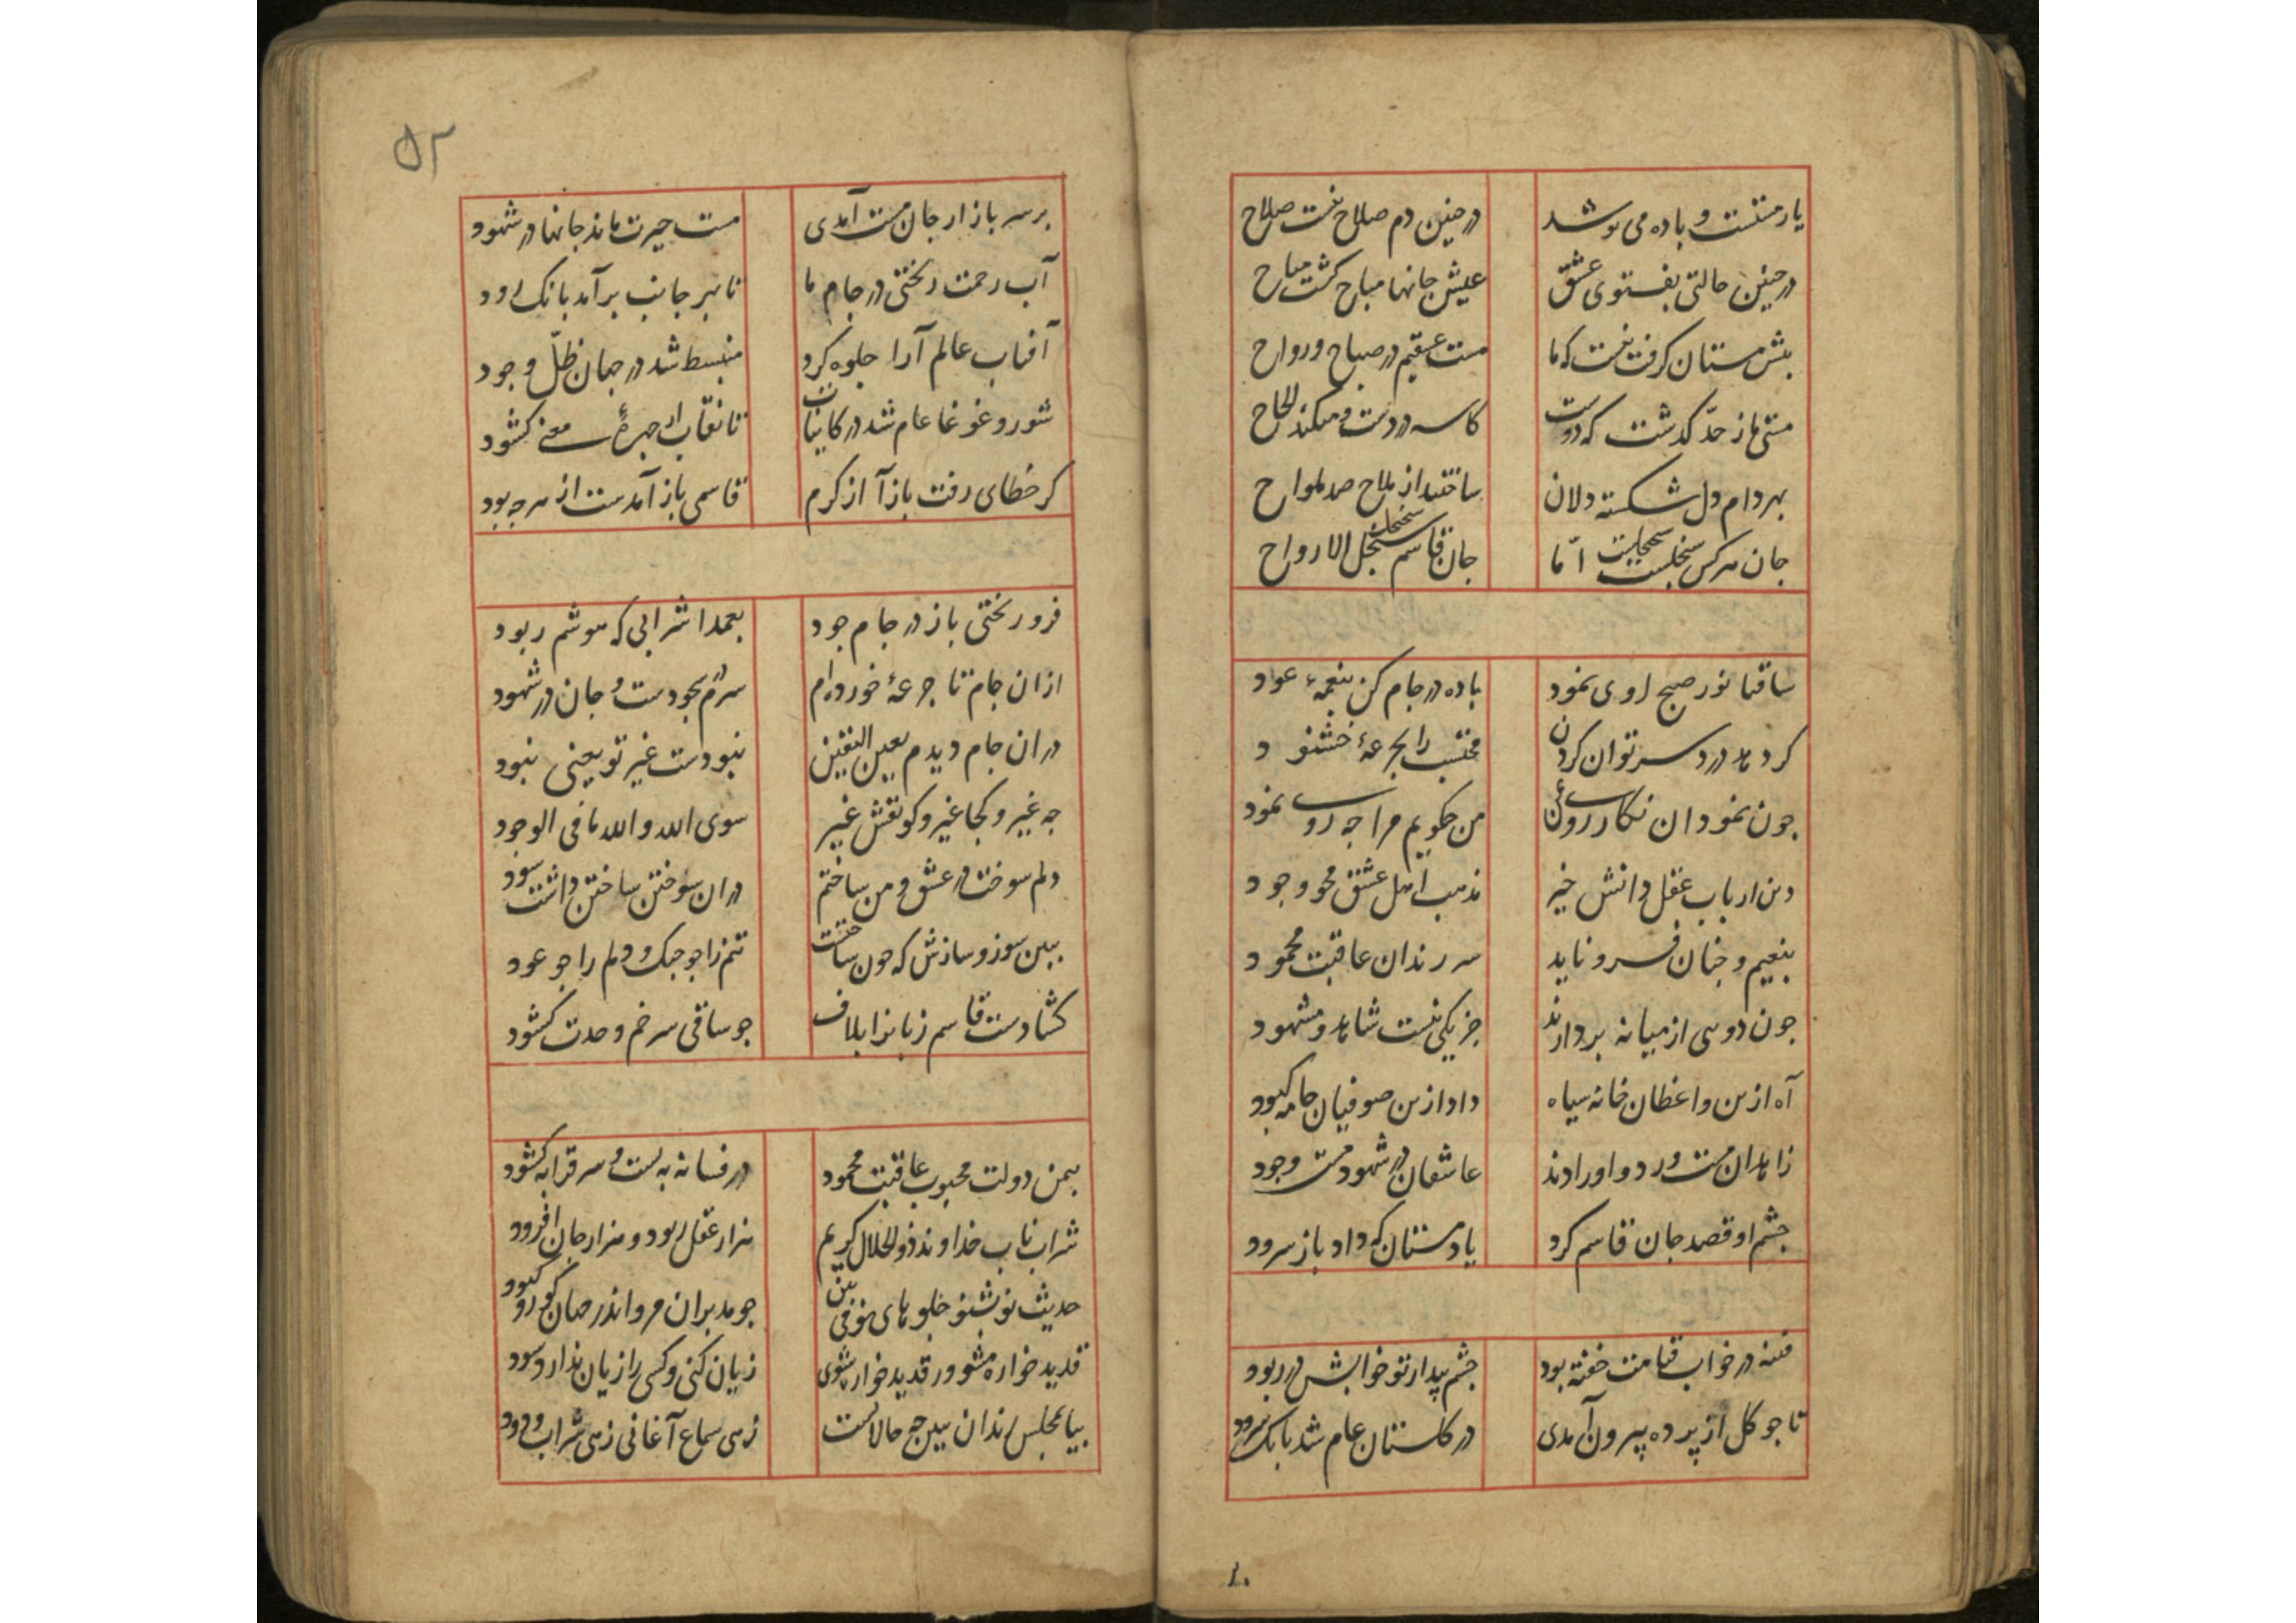 یار مستست و باده می نوشد در چنین دم صلاح نیست صلاح
در چنین حالتی بفتوی عشق عیش جانها مباح گشت مباح
پیش مستان گرفت نیست که ما مست عشقیم در صباح و رواح
مستی ما ز حدّ گذشت که دوست کاسه در دست و میکند الحاح
بهر دام دل شکسته دلان ساختند از ملاح صد ملواح
جان هر کس سجنجلست امّا جان قاسم سجنجل الارواح
ساقیا نور صبح روی نمود باده در جام کن بنغمهٔ عود
گر دهد درد سر توان کردن محتسب را بجرعهٔ خشنود
چون نمود آن نگار روی به من من چگویم مرا چه روی نمود
دین ارباب عقل دانش خیر مذهب اهل عشق محو وجود
بنعیم و جنان فرو ناید سر رندان عاقبت محمود
چون دویی از میانه بردارند جز یکی نیست شاهد و مشهود
آه ازین واعظان خانه سیاه داد ازین صوفیان جامه کبود
زاهدان مست ورد و اورادند عاشقان در شهود مست وجود
چشم او قصد جان قاسم کرد یاد مستان که داد باز سرود
فتنه در خواب قیامت خفته بود چشم بیدار تو خوابش در ربود
تا چو گل از پرده بیرون آمدی در گلستان عام شد بانک سرود
۵۲
بر سر بازار جان مست آمدی مست حیرت ماند جانها در شهود
آب رحمت ریختی در جام ما تا بهر جانب برآمد بانک رود
آفتاب عالم آرا جلوه کرد منبسط شد در جهان ظلّ وجود
شور و غوغا عام شد در کاینات تا نقاب از چهرهٔ معنی گشود
گر خطای رفت باز آ از کرم قاسمی باز آمدست از هر چه بود
فرو ریختی باز در جام جود بعمدا شرابی که هوشم ربود
از آن جام تا جرعهٔ خورده‌ام سرم در سجودست و جان در شهود
در آن جام دیدم بعین الیقین نبودست غیر تو یعنی نبود
چه غیر و کجا غیر و کو نقش غیر سوی الله والله ما فی الوجود
دلم سوخت در عشق و من ساختم در آن سوختن ساختن داشت سود
ببین سوز و سازش که چون ساختست تنم را چو چنگ و دلم را چو عود
گشادست قاسم زبان را بلاف چو ساقی سر خم وحدت گشود
بیمن دولت محبوب عاقبت محمود در فسانه ببست و سر قرابه گشود
شراب ناب خداوند ذو الجلال کریم هزار عقل ربود و هزار جان افزود
حدیث نو بشنو جلوهای نو می بین چو مدبران مرو اندر میان گور و کبود
قدید خواره مشو ور قدید خوار شوی زیان کنی و کسی را زیان ندارد سود
بیا بمجلس رندان ببین چه حالاتست زهی سماع آغانی زهی شراب و درود